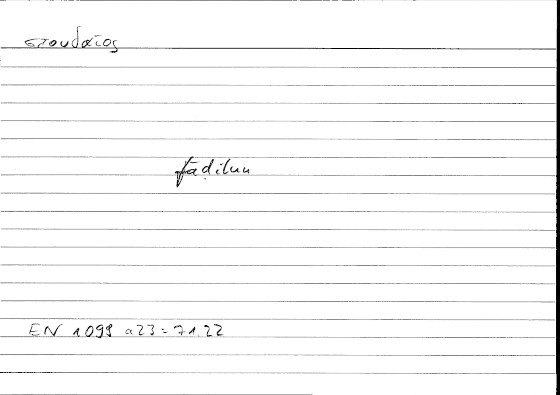 σπουδαῖος
fāḍilun
EN 1099 a23 = 71.22